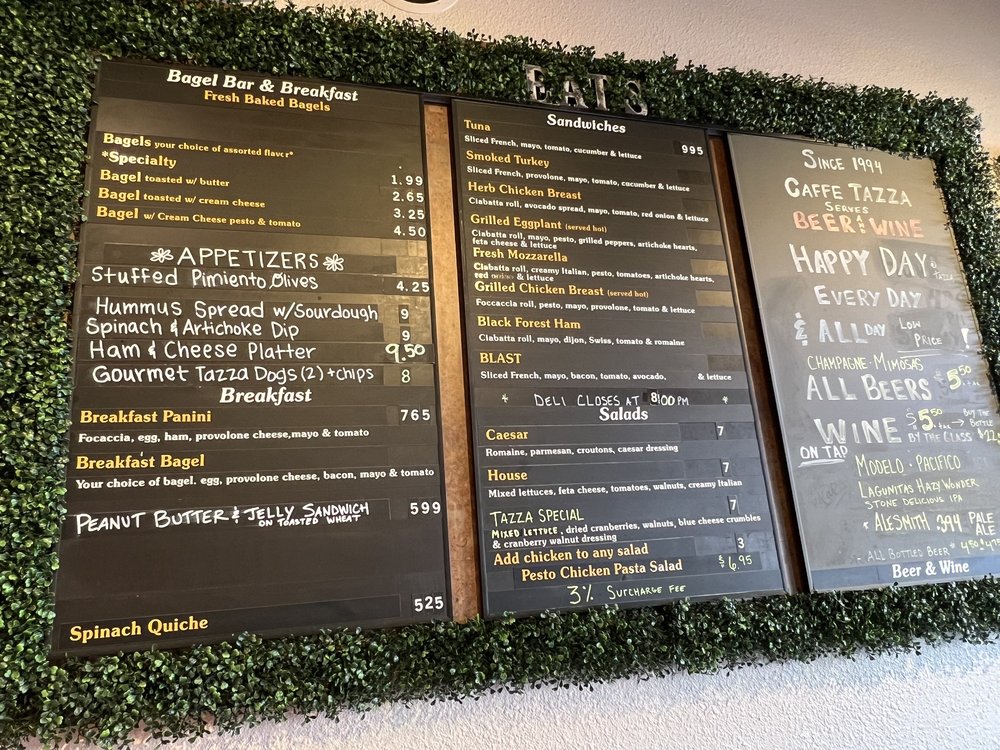 EATS
Bagel Bar & Breakfast
Fresh Baked Bagels
Bagels your choice of assorted flavor*
*Specialty
Bagel toasted w/ butter 1.99
Bagel toasted w/ cream cheese 2.65
Bagel w/ Cream Cheese pesto & tomato 3.25
4.50
APPETIZERS
Stuffed Pimiento Olives 4.25
Hummus Spread w/Sourdough 9
Spinach & Artichoke Dip 9
Ham & Cheese Platter 9.50
Gourmet Tazza Dogs (2) + chips 8
Breakfast
Breakfast Panini 765
Focaccia, egg, ham, provolone cheese, mayo & tomato
Breakfast Bagel
Your choice of bagel. egg, provolone cheese, bacon, mayo & tomato
PEANUT BUTTER & JELLY SANDWICH 599
ON TOASTED WHEAT
Spinach Quiche 525
Sandwiches
Tuna 995
Sliced French, mayo, tomato, cucumber & lettuce
Smoked Turkey
Sliced French, provolone, mayo, tomato, cucumber & lettuce
Herb Chicken Breast
Ciabatta roll, avocado spread, mayo, tomato, red onion & lettuce
Grilled Eggplant (served hot)
Ciabatta roll, mayo, pesto, grilled peppers, artichoke hearts,
feta cheese & lettuce
Fresh Mozzarella
Ciabatta roll, creamy Italian, pesto, tomatoes, artichoke hearts,
red & lettuce
Grilled Chicken Breast (served hot)
Foccaccia roll, pesto, mayo, provolone, tomato & lettuce
Black Forest Ham
Ciabatta roll, mayo, dijon, Swiss, tomato & romaine
BLAST
Sliced French, mayo, bacon, tomato, avocado, & lettuce
* DELI CLOSES AT 8:00 PM *
Salads
Caesar 7
Romaine, parmesan, croutons, caesar dressing
House 7
Mixed lettuces, feta cheese, tomatoes, walnuts, creamy Italian
TAZZA SPECIAL 7
MIXED LETTUCE, dried cranberries, walnuts, blue cheese crumbles
& cranberry walnut dressing
Add chicken to any salad 3
Pesto Chicken Pasta Salad $6.95
3% SURCHARGE FEE
SINCE 1994
CAFFE TAZZA
SERVES
BEER & WINE
HAPPY DAY
EVERY DAY
& ALL DAY LOW PRICE!
CHAMPAGNE · MIMOSAS
ALL BEERS $5.50
WINE $5.50 BUY THE BOTTLE
BY THE GLASS
ON TAP
MODELO · PACIFICO
LAGUNITAS HAZY WONDER
STONE DELICIOUS IPA
ALESMITH .394 PALE ALE
- ALL BOTTLED BEER
Beer & Wine